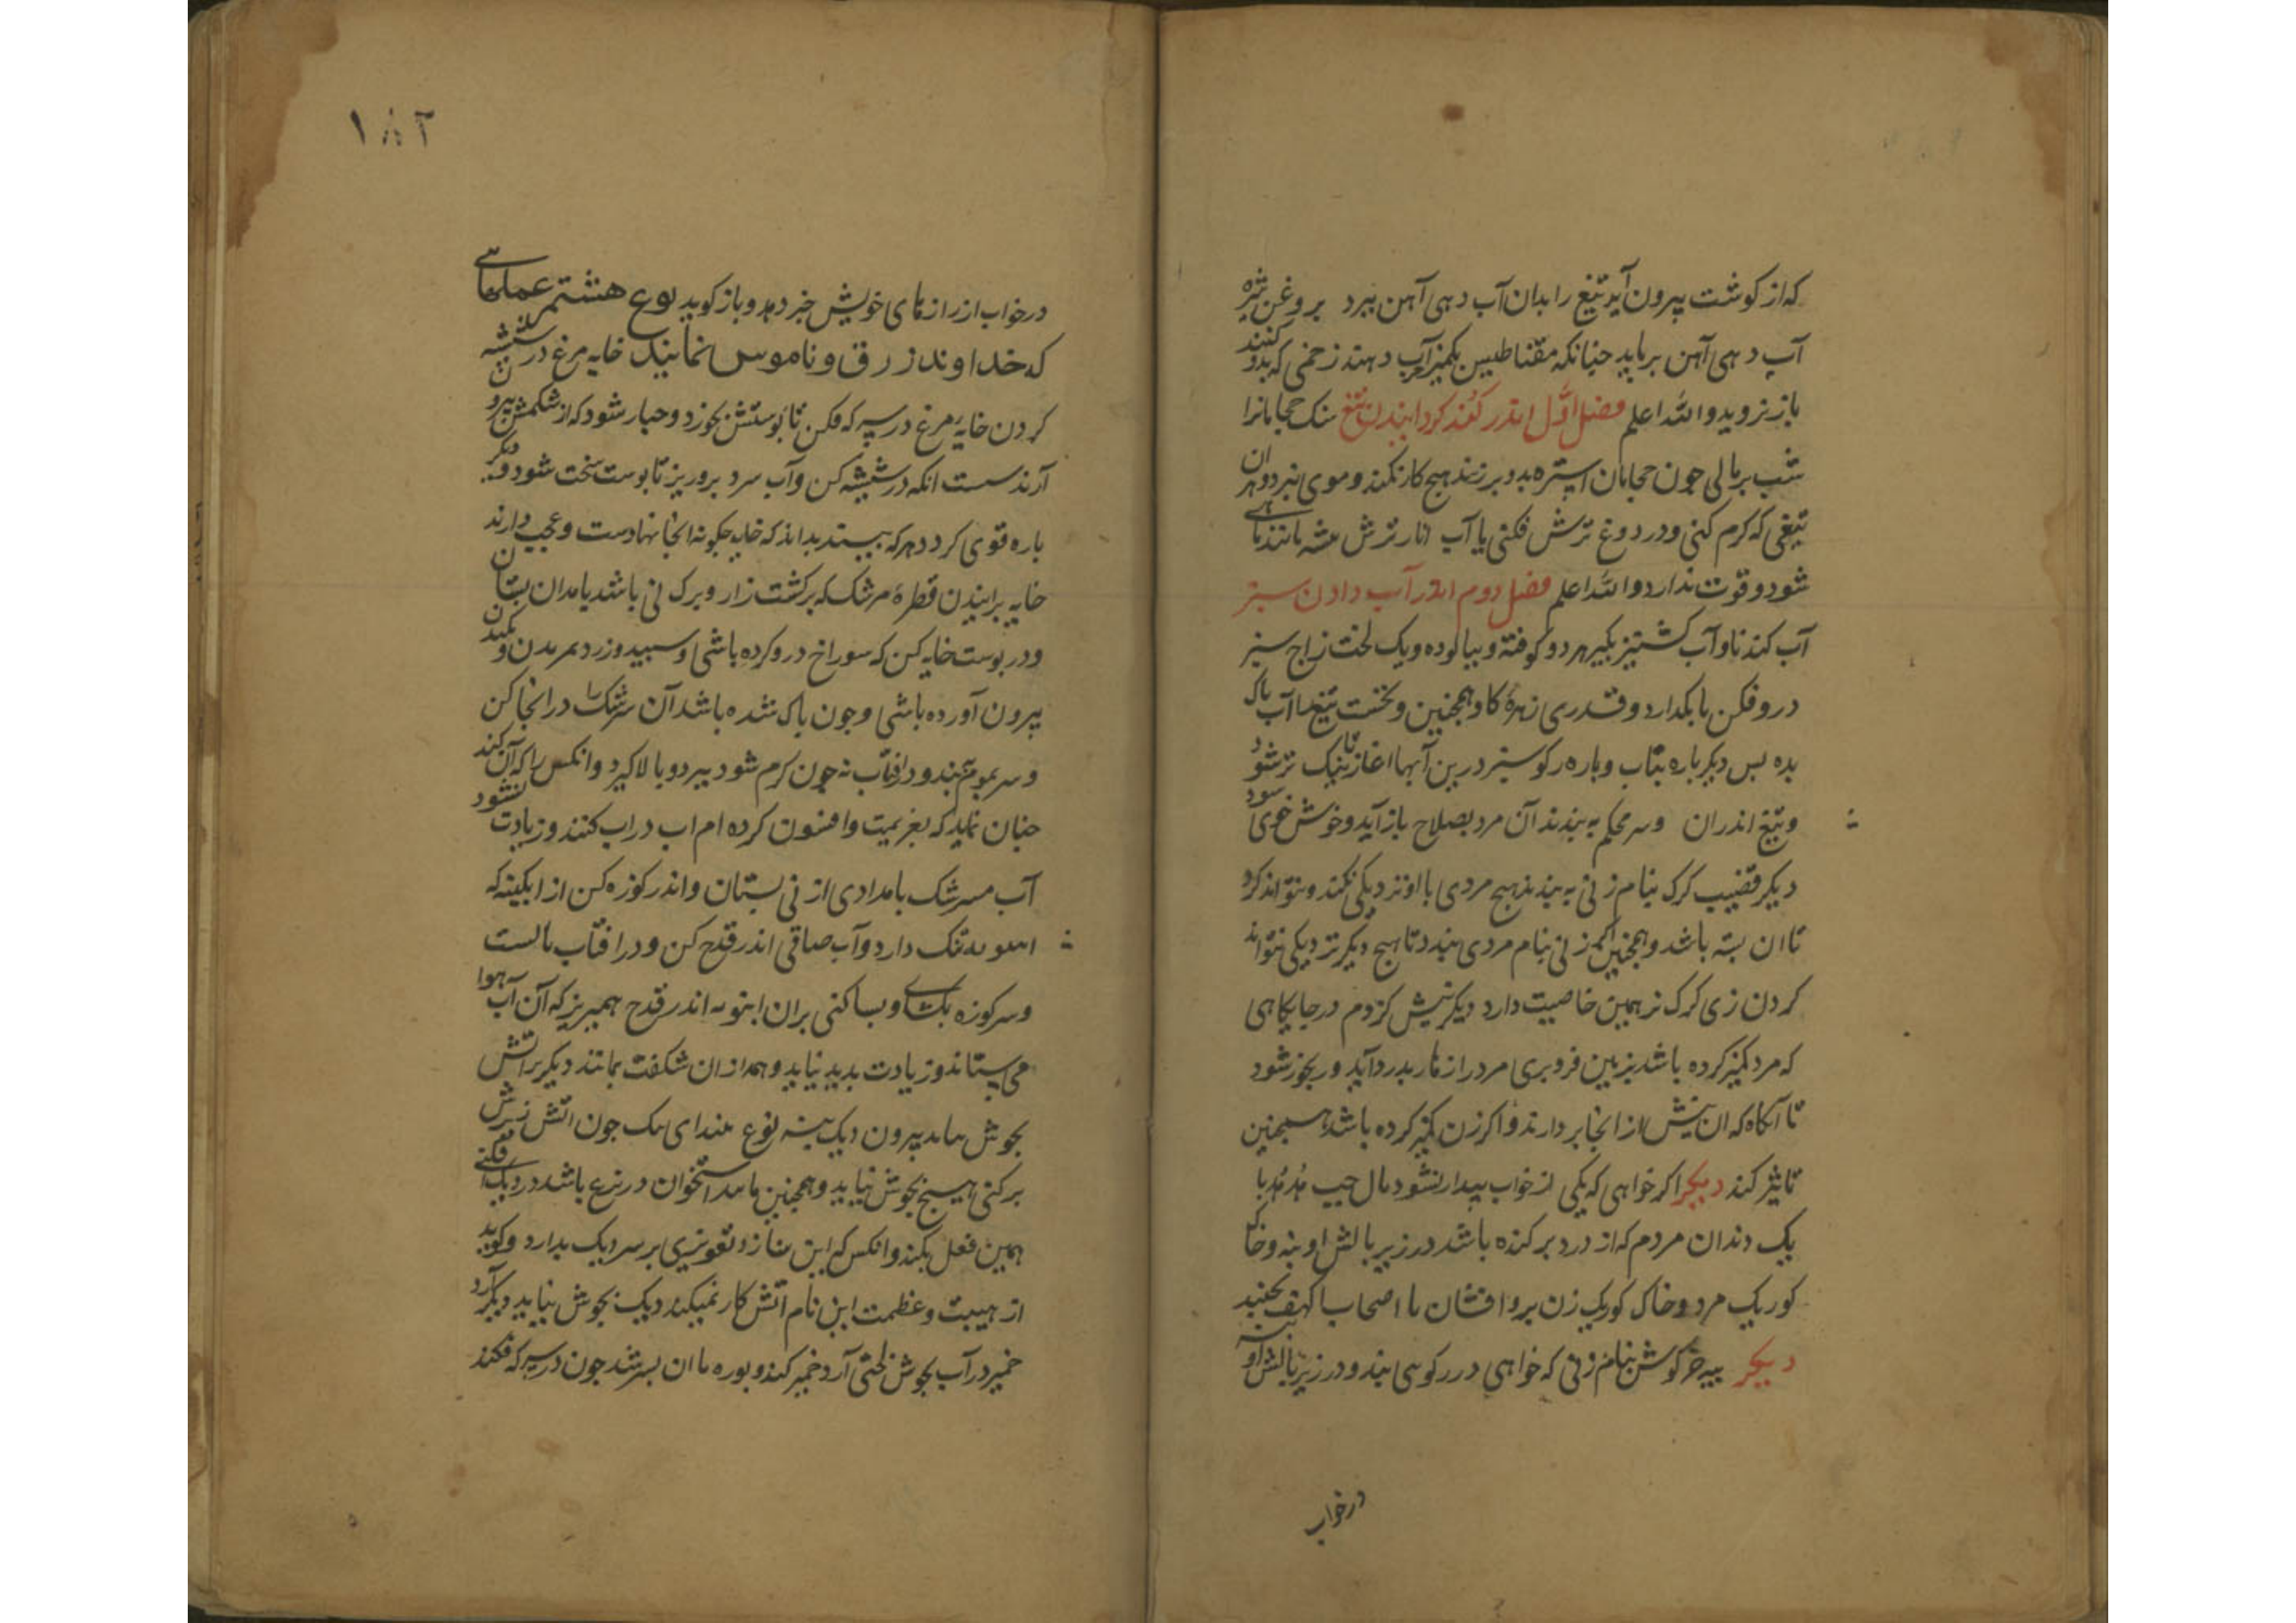 که از کوشت بیرون آید تیغ را بدان آب دهی آهن ببرد بروغن شیره
آب دهی آهن برباید جنانکه مقناطیس بکمیز آب دهند زخمی که بدو کنند
باز نروید والله اعلم فصل اول اندر کند کردانیدن تیغ سنک حجامانرا
شب برمالی جون حجامان استره بدو برزنند هیج کار نکند و موی نبرد و هر ان
تیغی که کرم کنی و در دوغ ترش فکنی یا آب انار ترش همه مانند
شود و قوت ندارد والله اعلم فصل دوم اندر آب دادن سبز
آب کندنا و آب کشنیز بکیر هر دو کوفته و بیالوده و یک لخت زاج سبز
درو فکن تا بکدازد و قدری زهره کاو همجنین و نخست تیغ را آب پاک
بده بس دیکر باره بتاب و باره رکو سبز درین آبها اغاز تا نیک تر شود
و تیغ اندران وسر محکم ببندند آن مرد بصلاح باز آید و خوش خوی شود
دیکر قضیب کرک بنام زنی ببندند هیج مردی با او نزدیکی نکند و نتواند کرد
تا ان بسته باشد و همجنین اکر زنی بنام مردی بندد تا هیج دیکر نزدیکی نتواند
کردن زی کرک نر همین خاصیت دارد دیکر نیش کژدم در جایکاهی
که مرد کمیز کرده باشد بزمین فروبری مرد را زهار بدرد آید و رنجور شود
تا آنکاه که ان نیش از انجا بردارند و اکر زن کمیز کرده باشد همجنین
تاثیر کند دیکر اکر خواهی که یکی از خواب بیدار نشود بال جب هدهد با
یک دندان مردم که از درد برکنده باشد در زیر بالش او بنه و خاک
کور یک مرد و خاک کور یک زن برو افشان با اصحاب کهف بخسبد
دیکر بیه خرکوش بنام زنی که خواهی در رکوی بند و در زیر بالش او بنه
درخواب
۱۸۲
درخواب از رازهای خویش خبر دهد و باز کوید نوع هشتم عملهاے
که خداوندان زرق و ناموس نمایند خایه مرغ در شیشه
کردن خایه مرغ در سرکه فکن تا بوستش بخورد و جنان شود که از شکمش بیرون
آرند سست انکه در شیشه کن و آب سرد برو ریز تا بوست سخت شود و دیکر
باره قوی کردد هر که ببیند بداند که خایه جکونه انجا نهادست و عجب دارند
خایه برانیدن قطره سرشک که برکشت زار و برک نی باشد بامدادان بستان
و در بوست خایه کن که سوراخ درو کرده باشی و سبید و زرد بمزیدن و مکیدن
بیرون آورده باشی و جون پاک شده باشد آن سرشک را در انجا کن
وسر بموم ببند و در افتاب نه جون کرم شود ببرد و بالا کیرد و انکس را که آن کند
جنان نماید که بعزیمت و افسون کرده ام اب در اب کنند و زیادت نشود
آب سرشک بامدادی از نی بستان و اندر کوزه کن از ابکینه که
انبوبه تنک دارد و آب صافی اندر قدح کن و در افتاب بایست
وسر کوزه بکشاے و بسا کنی بران انبوبه اندر قدح همیریز که آن آب هوا
می ستاند و زیادت بدید نیاید و همه ازان شکفت بمانند دیکر بر آتش
بجوش نیاید بیرون دیک بیه نوع بیندای نیک جون اتش زیرش
برکنی هیج بجوش نیاید و همجنین استخوان در نزع باشد در دیک افکنے
همین فعل بکند و انکس که این سازد تعویذی بر سر دیک بدارد و کوید
از هیبت و عظمت این نام اتش کار نمیکند دیک بجوش نیاید دیکر آرد
خمیر در آب بجوش لختی آرد خمیر کند و بوره با ان بسرشد جون در سرکه فکند